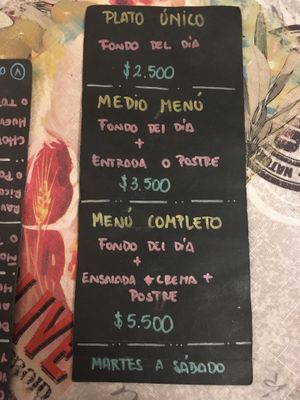 PLATO ÚNICO
FONDO DEL DÍA
$2.500
MEDIO MENÚ
FONDO DEl DÍA
+
ENTRADA O POSTRE
$3.500
MENÚ COMPLETO
FONDO DEl DÍA
+
ENSALADA + CREMA +
POSTRE
$5.500
MARTES A SÁBADO